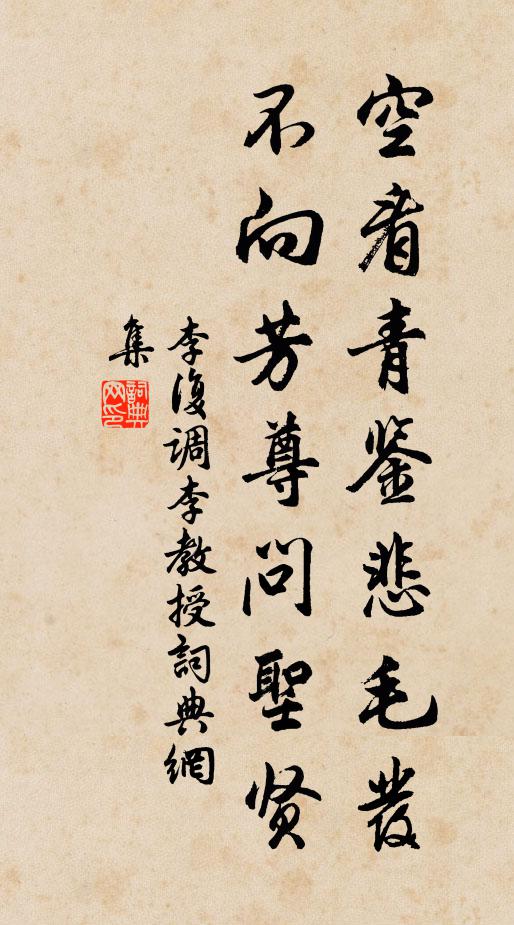 空看青鉴悲毛发
不向芳尊问聖贤
李復調李教授詞典網
集
詞典
网印